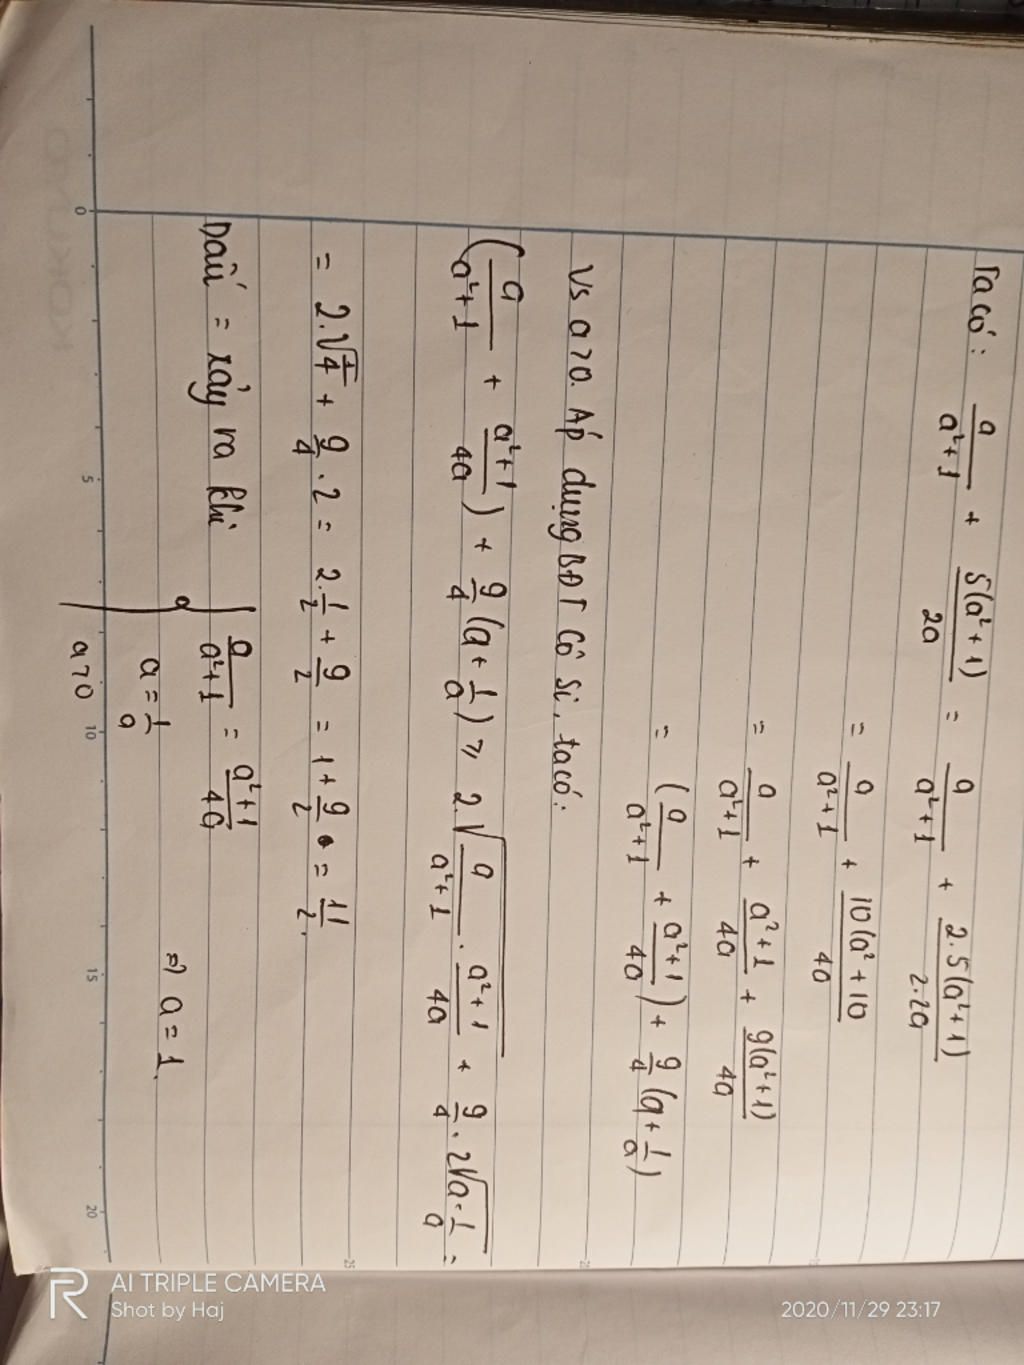 Ta có: a/(a²+1) + 5(a²+1)/2a = a/(a²+1) + 2.5(a²+1)/2.2a
= a/(a²+1) + 10(a²+10/4a
= a/(a²+1) + (a²+1)/4a + 9(a²+1)/4a
= (a/(a²+1) + (a²+1)/4a) + 9/4 (a + 1/a)
Vs a>0. Áp dụng BĐT Cô si, ta có:
(a/(a²+1) + (a²+1)/4a) + 9/4 (a + 1/a) ≥ 2.√(a/(a²+1) . (a²+1)/4a) + 9/4 . 2√(a. 1/a) =
= 2.√(1/4) + 9/4 . 2 = 2. 1/2 + 9/2 = 1 + 9/2 = 11/2.
Dấu = xảy ra khi a/(a²+1) = (a²+1)/4a
a = 1/a ⇒ a = 1.
a>0
0 5 10 15 20
25
AI TRIPLE CAMERA
Shot by Haj
2020/11/29 23:17